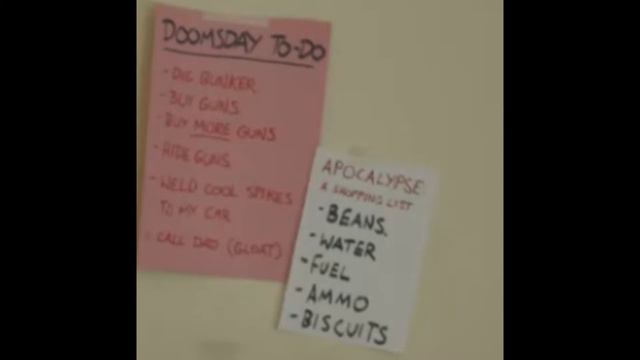 DOOMSDAY TO-DO
- DIG BUNKER
- BUY GUNS
- BUY MORE GUNS
- HIDE GUNS
- WELD COOL SPIKES
TO MY CAR
- CALL DAD (GLOAT)
APOCALYPSE:
A SHOPPING LIST
- BEANS.
- WATER
- FUEL
- AMMO
- BISCUITS